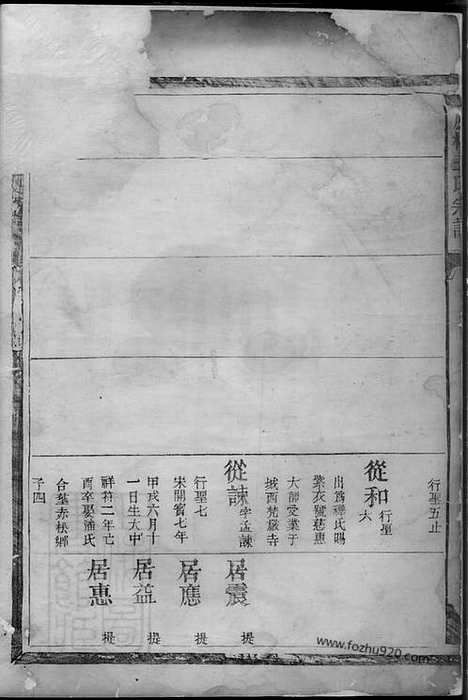 王氏宗譜
行聖五止
從和
行聖
六
出爲釋氏賜
紫衣號慈惠
大師愛業于
城西梵嚴寺
從諫
字孟諫
行聖七
宋開寶七年
甲戌六月十
一日生大中
祥符二年己
酉卒娶潘氏
合塟赤松鄉
子四
居震
提
居應
提
居益
提
居惠
提
www.fozhu920.com